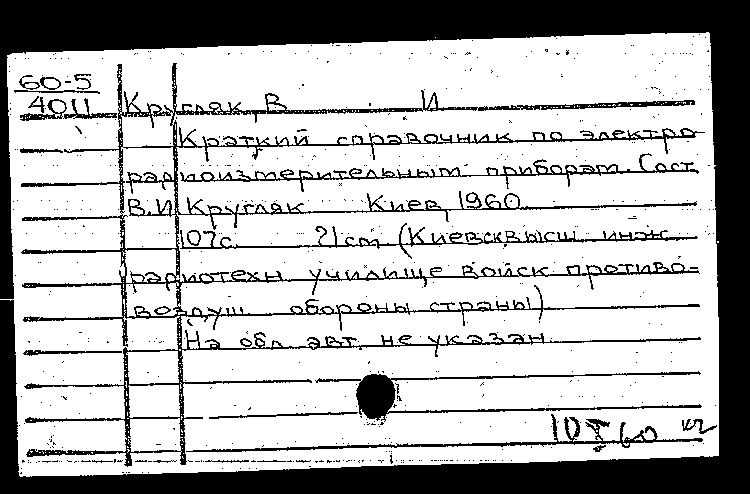 60-5
4011
Кругляк, В И
Краткий справочник по электро
радиоизмерительным приборам. Сост.
В.И. Кругляк Киев, 1960
107с. 21см (Киевск. высш. инж.
радиотехн. училище войск противо-
воздуш. обороны страны)
На обл. авт. не указан.
10 X 60